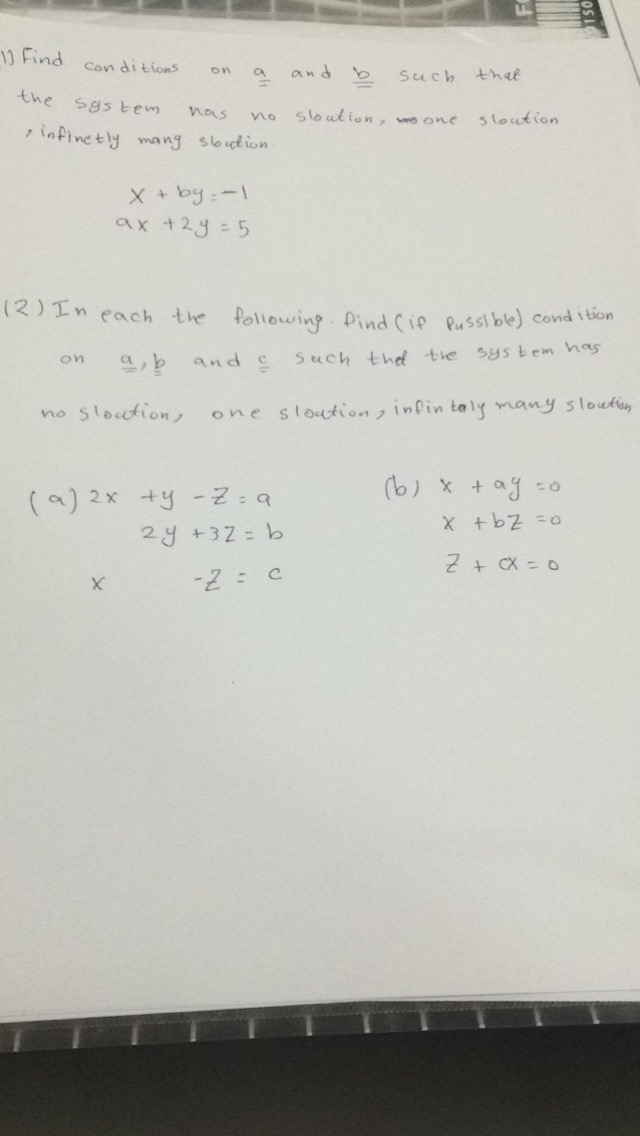 1) Find conditions on a and b such that
the system has no sloution, one sloution
, infinetly many sloution.
x + by = -1
ax + 2y = 5
(2) In each the following. find (if Pussible) condition
on a, b and c such that the system has
no sloution, one sloution, infintely many sloution
(a) 2x + y - z = a
2y + 3z = b
x - z = c
(b) x + ay = 0
x + bz = 0
z + cx = 0